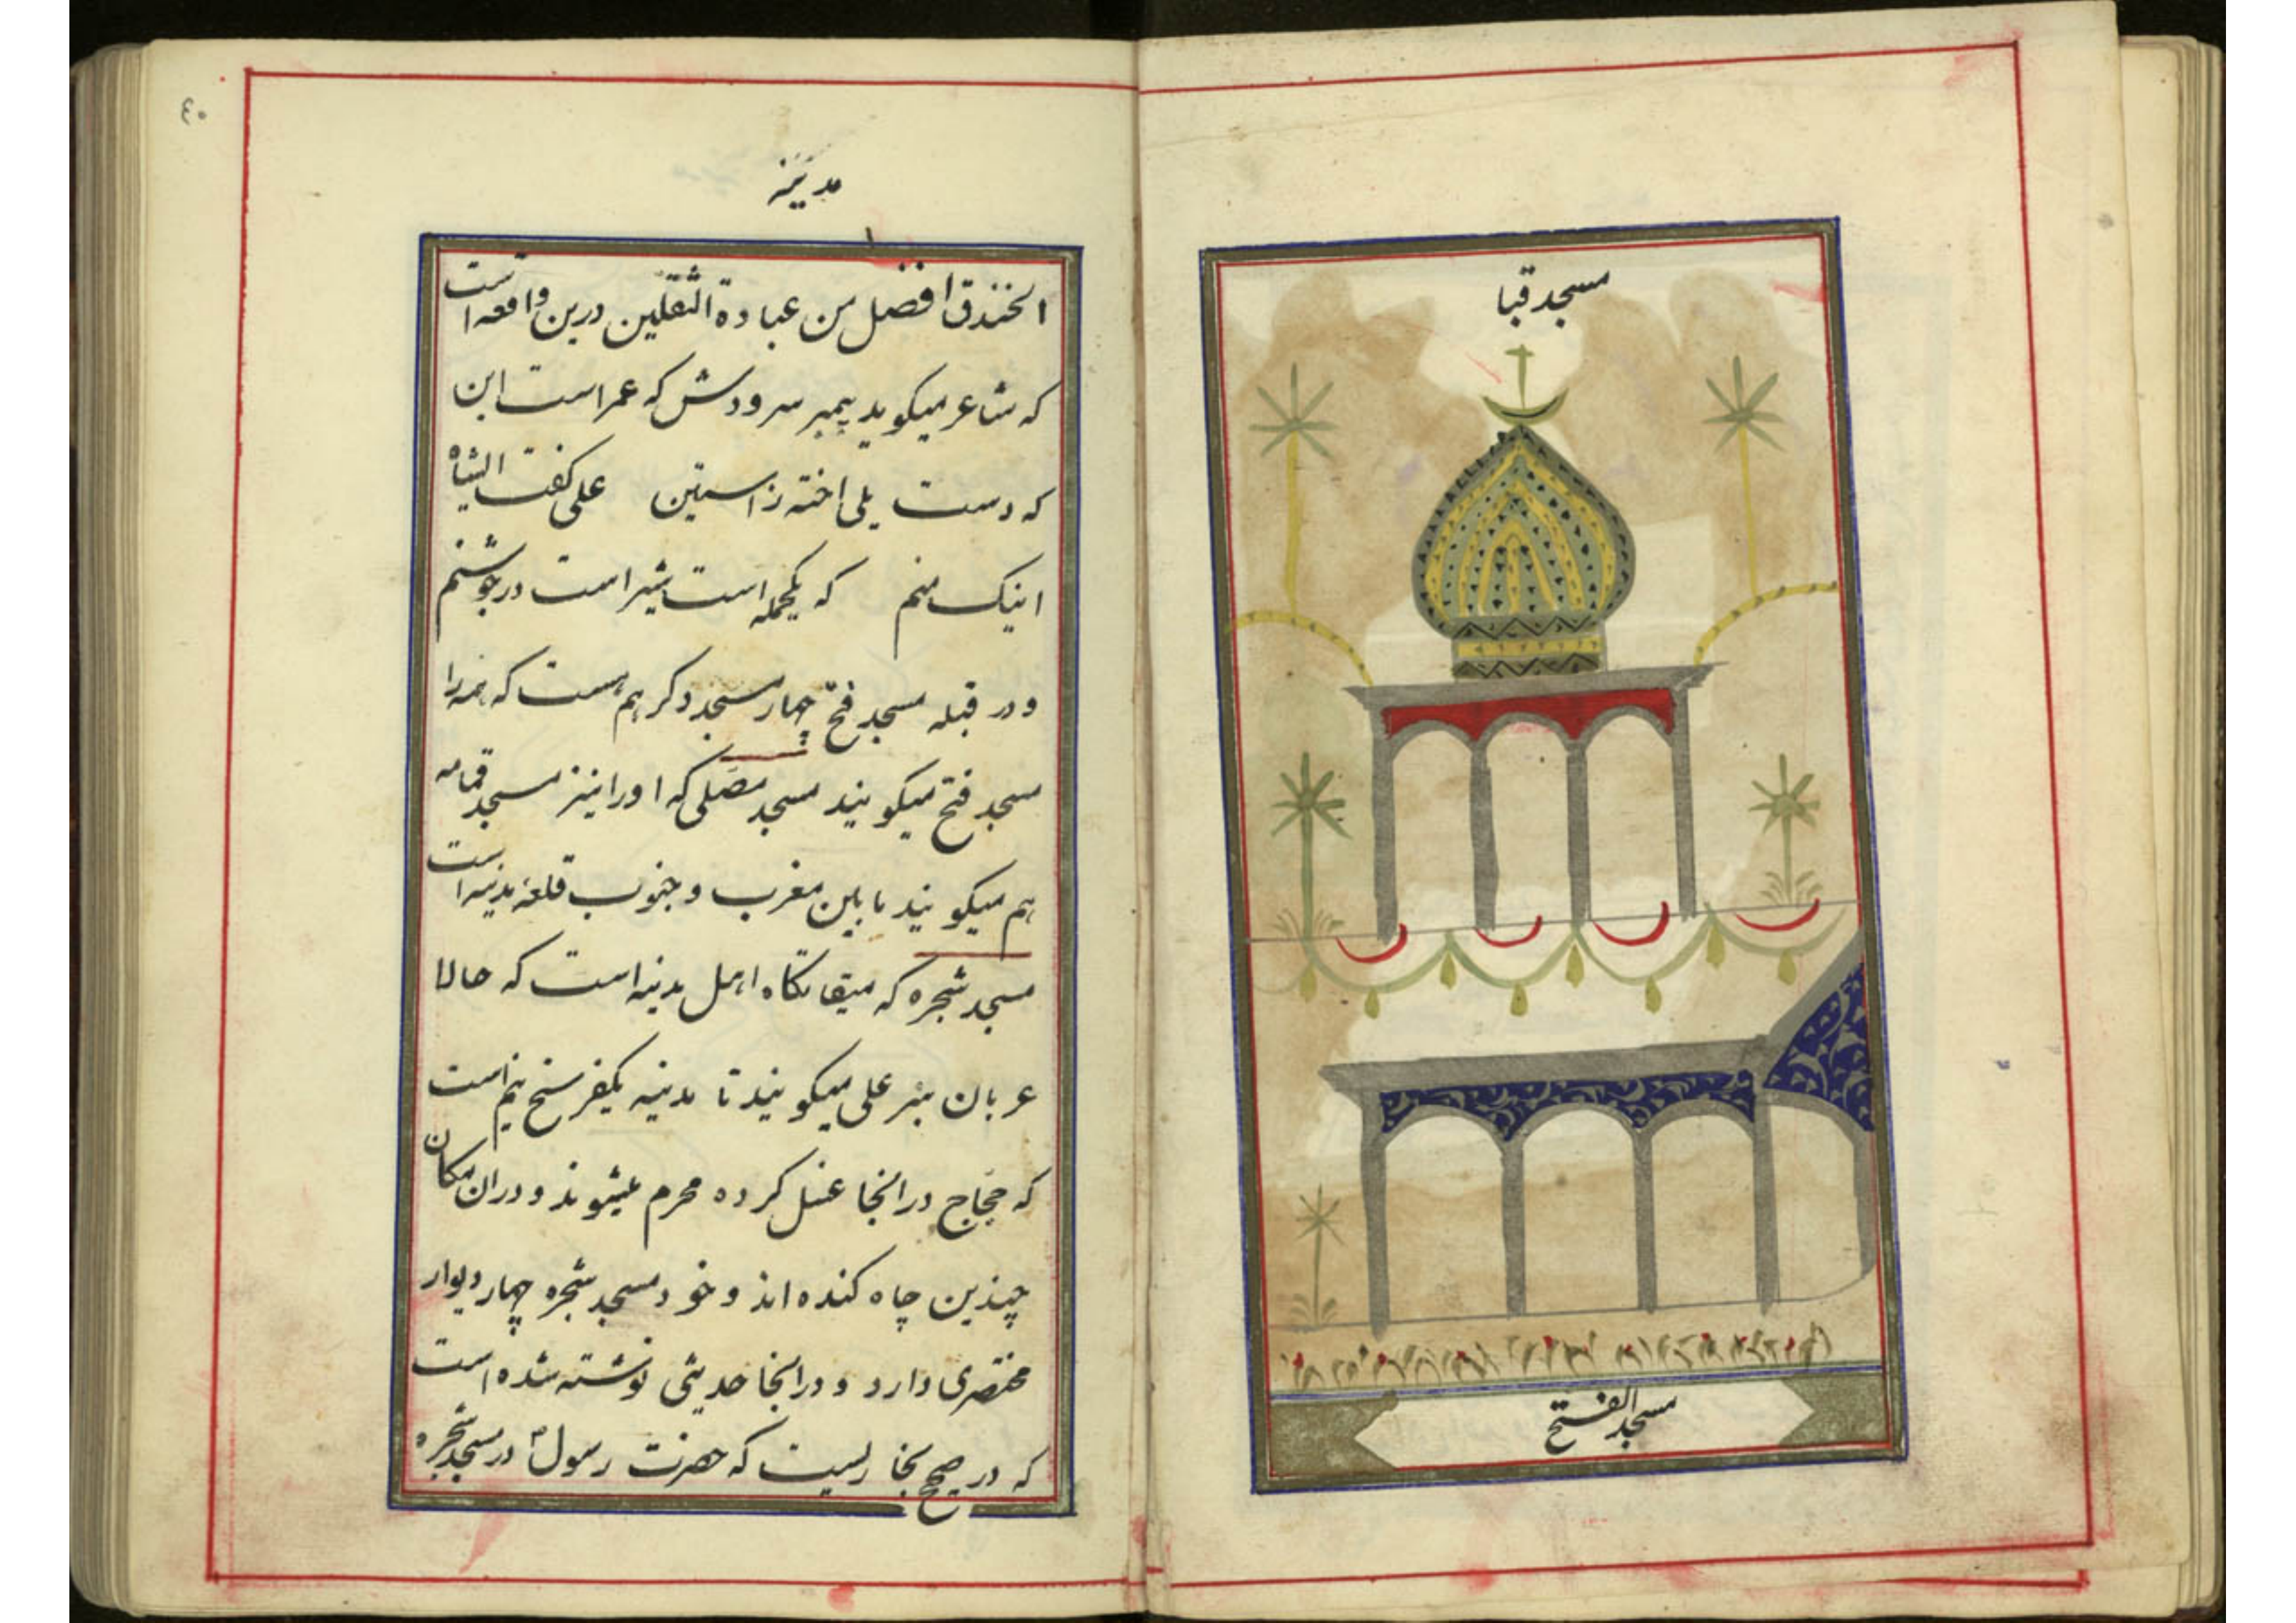 مسجد قبا
مسجد الفتح
۴۰
مدینه
الخندق افضل من عبادة الثقلین درین واقعه است
که شاعر میکوید پیمبر سرودش که عمر است این
که دست یلی اخته ز استین علی کفت ایشاه
اینک منم که یکجمله است شیر است در جوشنم
و در قبله مسجد فتح چهار مسجد دکر هم هست که همه را
مسجد فتح میکویند مسجد مصلی که اورا نیز مسجد قمامه
هم میکویند مابین مغرب و جنوب قلعهٔ مدینه است
مسجد شجره که میقاتکاه اهل مدینه است که حالا
عربان بئر علی میکویند تا مدینه یکفرسخ نیم است
که حجاج در انجا غسل کرده محرم میشوند و در ان مکان
چندین چاه کنده اند و خود مسجد شجره چهار دیوار
مختصری دارد و در انجا حدیثی نوشته شده است
که در صحیح بخاریست که حضرت رسول در مسجد شجره